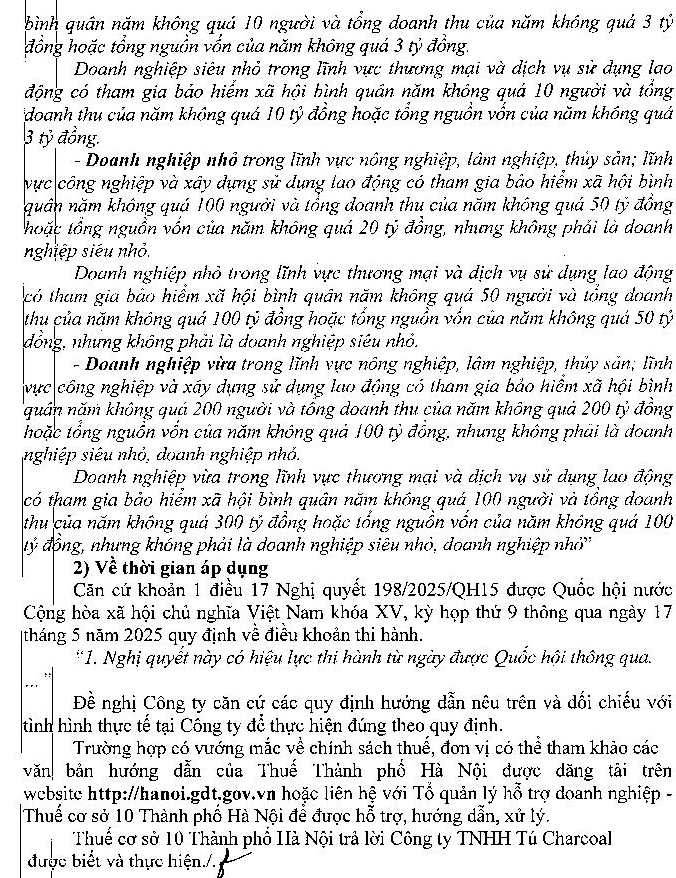 bình quân năm không quá 10 người và tổng doanh thu của năm không quá 3 tỷ
đồng hoặc tổng nguồn vốn của năm không quá 3 tỷ đồng.
Doanh nghiệp siêu nhỏ trong lĩnh vực thương mại và dịch vụ sử dụng lao
động có tham gia bảo hiểm xã hội bình quân năm không quá 10 người và tổng
doanh thu của năm không quá 10 tỷ đồng hoặc tổng nguồn vốn của năm không quá
3 tỷ đồng.
- Doanh nghiệp nhỏ trong lĩnh vực nông nghiệp, lâm nghiệp, thủy sản; lĩnh
vực công nghiệp và xây dựng sử dụng lao động có tham gia bảo hiểm xã hội bình
quân năm không quá 100 người và tổng doanh thu của năm không quá 50 tỷ đồng
hoặc tổng nguồn vốn của năm không quá 20 tỷ đồng, nhưng không phải là doanh
nghiệp siêu nhỏ.
Doanh nghiệp nhỏ trong lĩnh vực thương mại và dịch vụ sử dụng lao động
có tham gia bảo hiểm xã hội bình quân năm không quá 50 người và tổng doanh
thu của năm không quá 100 tỷ đồng hoặc tổng nguồn vốn của năm không quá 50 tỷ
đồng, nhưng không phải là doanh nghiệp siêu nhỏ.
- Doanh nghiệp vừa trong lĩnh vực nông nghiệp, lâm nghiệp, thủy sản; lĩnh
vực công nghiệp và xây dựng sử dụng lao động có tham gia bảo hiểm xã hội bình
quân năm không quá 200 người và tổng doanh thu của năm không quá 200 tỷ đồng
hoặc tổng nguồn vốn của năm không quá 100 tỷ đồng, nhưng không phải là doanh
nghiệp siêu nhỏ, doanh nghiệp nhỏ.
Doanh nghiệp vừa trong lĩnh vực thương mại và dịch vụ sử dụng lao động
có tham gia bảo hiểm xã hội bình quân năm không quá 100 người và tổng doanh
thu của năm không quá 300 tỷ đồng hoặc tổng nguồn vốn của năm không quá 100
tỷ đồng, nhưng không phải là doanh nghiệp siêu nhỏ, doanh nghiệp nhỏ”
2) Về thời gian áp dụng
Căn cứ khoản 1 điều 17 Nghị quyết 198/2025/QH15 được Quốc hội nước
Cộng hòa xã hội chủ nghĩa Việt Nam khóa XV, kỳ họp thứ 9 thông qua ngày 17
tháng 5 năm 2025 quy định về điều khoản thi hành.
“1. Nghị quyết này có hiệu lực thi hành từ ngày được Quốc hội thông qua.
... ”
Đề nghị Công ty căn cứ các quy định hướng dẫn nêu trên và đối chiếu với
tình hình thực tế tại Công ty để thực hiện đúng theo quy định.
Trường hợp có vướng mắc về chính sách thuế, đơn vị có thể tham khảo các
văn bản hướng dẫn của Thuế Thành phố Hà Nội được đăng tải trên
website http://hanoi.gdt.gov.vn hoặc liên hệ với Tổ quản lý hỗ trợ doanh nghiệp -
Thuế cơ sở 10 Thành phố Hà Nội để được hỗ trợ, hướng dẫn, xử lý.
Thuế cơ sở 10 Thành phố Hà Nội trả lời Công ty TNHH Tú Charcoal
được biết và thực hiện./.